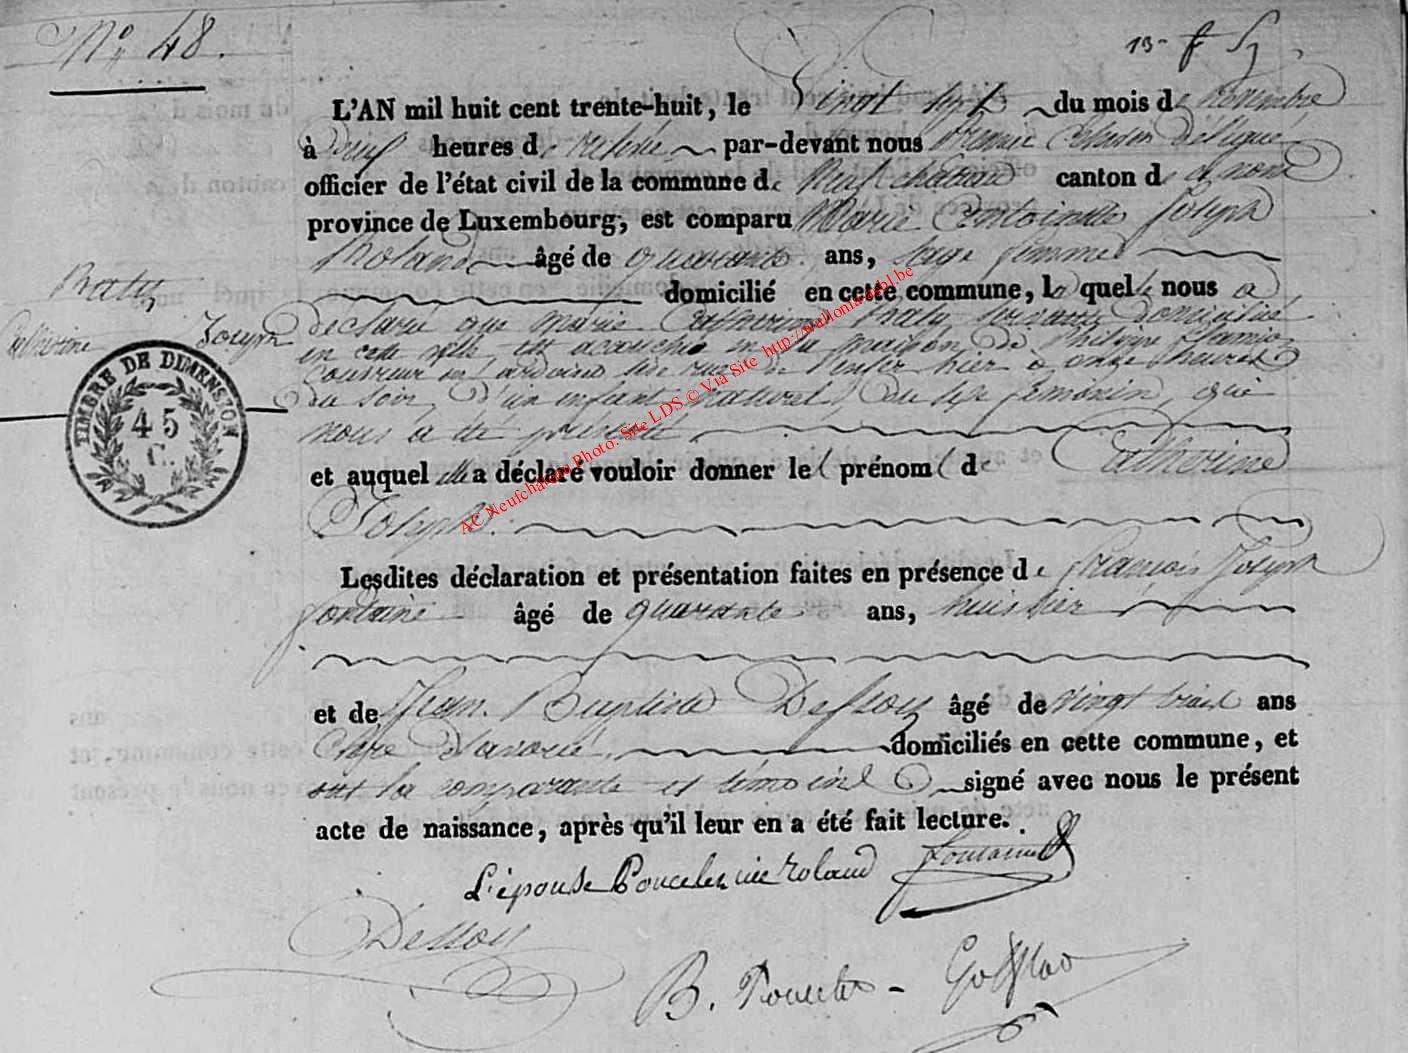 N° 48.
13
L'AN mil huit cent trente-huit, le Vingt sept du mois de Novembre
à heures de relevée par-devant nous
officier de l'état civil de la commune de Neufchateau canton de ce nom
province de Luxembourg, est comparu Marie Antoinette Joseph
Roland âgé de quarante ans, sage femme
Praty
domicilié en cette commune, la quelle nous a
Catherine Joseph
déclaré que Marie Catherine Praty domiciliée
en cette ville, est acouchée en la maison de Philippe
Couvreur en ardoises rue de l'enfer hier à onze heures
du soir, D'un enfant naturel, du sexe féminin, que
nous a été présenté
et auquel elle a déclaré vouloir donner les prénoms de Catherine
Joseph.
Lesdites déclaration et présentation faites en présence de François Joseph
fontaine âgé de quarante ans, huissier
et de Jean Baptiste Dessoy âgé de vingt ans
Clerc d'avoué, domiciliés en cette commune, et
ont la comparante et témoins signé avec nous le présent
acte de naissance, après qu'il leur en a été fait lecture.
L'épouse Poncelet née roland fontaine
Dessoy
B. Poncelet
TIMBRE DE DIMENSION
45
C.
AC Neufchateau Photo. Site LDS © Via Site http://wallonia-asbl.be